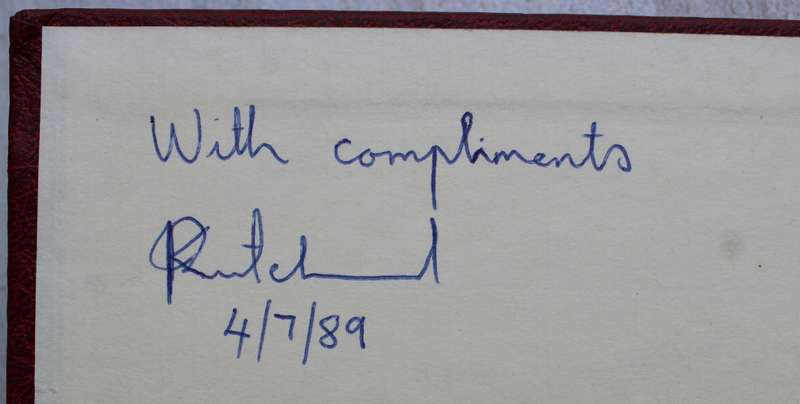 With compliments
4/7/89